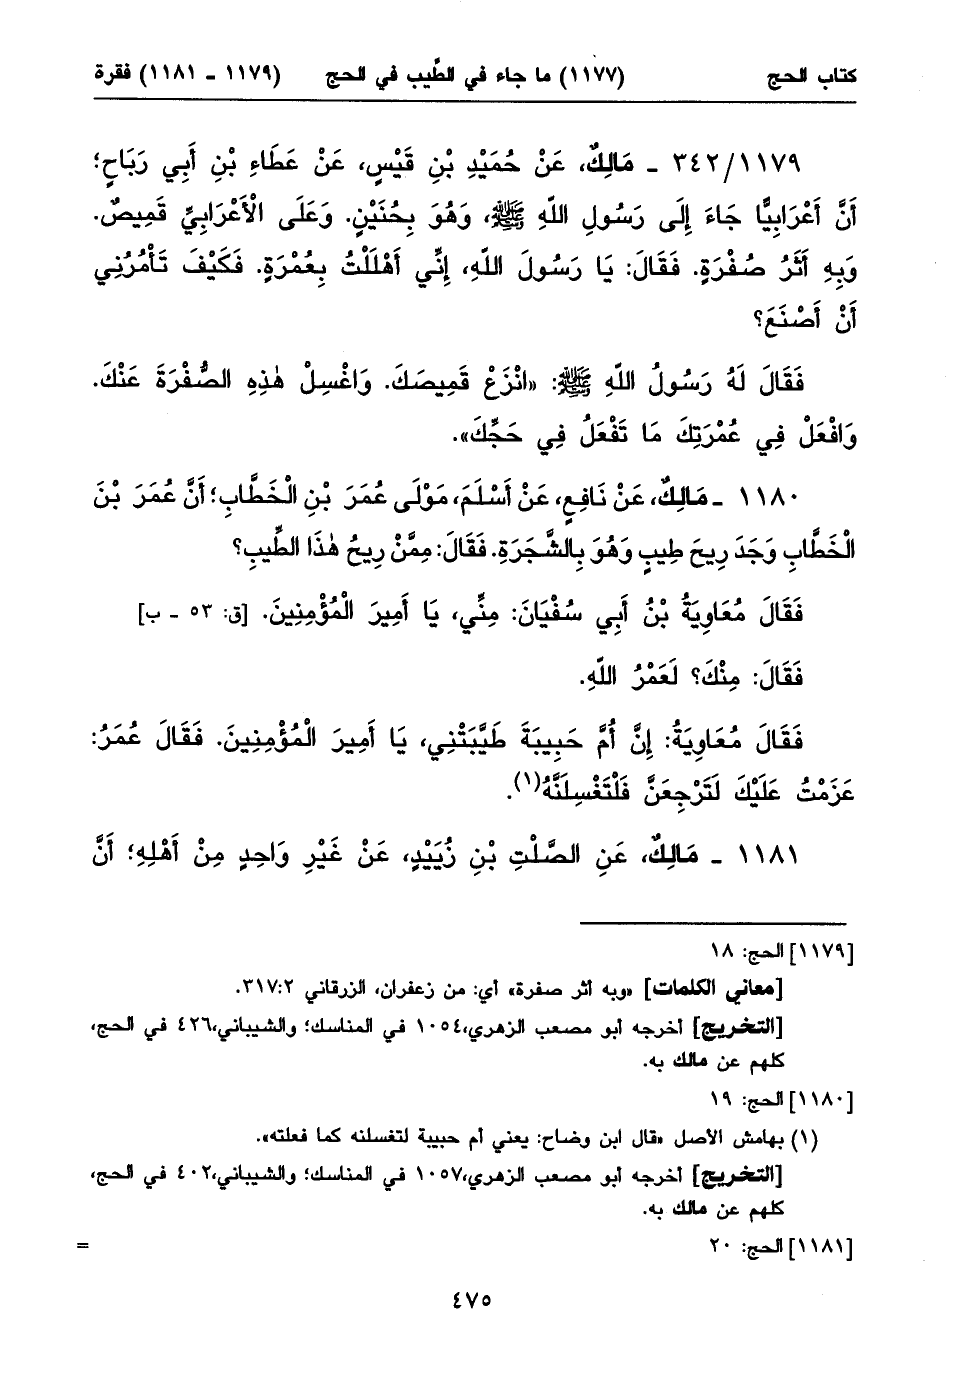 كتاب الحج (١١٧٧) ما جاء في الطِّيب في الحج (١١٧٩ - ١١٨١) فقرة
٣٤٢/١١٧٩ - مَالِكٌ، عَنْ حُمَيْدِ بْنِ قَيْسٍ، عَنْ عَطَاءِ بْنِ أَبِي رَبَاحٍ؛
أَنَّ أَعْرَابِيًّا جَاءَ إِلَى رَسُولِ اللّهِ ﷺ، وَهُوَ بِحُنَيْنٍ. وَعَلَى الْأَعْرَابِيِّ قَمِيصٌ.
وَبِهِ أَثَرُ صُفْرَةٍ. فَقَالَ: يَا رَسُولَ اللّهِ، إِنِّي أَهْلَلْتُ بِعُمْرَةٍ. فَكَيْفَ تَأْمُرُنِي
أَنْ أَصْنَعَ؟
فَقَالَ لَهُ رَسُولُ اللّهِ ﷺ: «انْزَعْ قَمِيصَكَ. وَاغْسِلْ هٰذِهِ الصُّفْرَةَ عَنْكَ.
وَافْعَلْ فِي عُمْرَتِكَ مَا تَفْعَلُ فِي حَجِّكَ».
١١٨٠ - مَالِكٌ، عَنْ نَافِعٍ، عَنْ أَسْلَمَ، مَوْلَى عُمَرَ بْنِ الْخَطَّابِ؛ أَنَّ عُمَرَ بْنَ
الْخَطَّابِ وَجَدَ رِيحَ طِيبٍ وَهُوَ بِالشَّجَرَةِ. فَقَالَ: مِمَّنْ رِيحُ هٰذَا الطِّيبِ؟
فَقَالَ مُعَاوِيَةُ بْنُ أَبِي سُفْيَانَ: مِنِّي، يَا أَمِيرَ الْمُؤْمِنِينَ. [ق: ٥٣ - ب]
فَقَالَ: مِنْكَ؟ لَعَمْرُ اللّهِ.
فَقَالَ مُعَاوِيَةُ: إِنَّ أُمَّ حَبِيبَةَ طَيَّبَتْنِي، يَا أَمِيرَ الْمُؤْمِنِينَ. فَقَالَ عُمَرُ:
عَزَمْتُ عَلَيْكَ لَتَرْجِعَنَّ فَلْتَغْسِلَنَّهُ(١).
١١٨١ - مَالِكٌ، عَنِ الصَّلْتِ بْنِ زُيَيْدٍ، عَنْ غَيْرِ وَاحِدٍ مِنْ أَهْلِهِ؛ أَنَّ
[١١٧٩] الحج: ١٨
[معاني الكلمات] «وبه أثر صفرة» أي: من زعفران، الزرقاني ٣١٧:٢.
[التخريج] أخرجه أبو مصعب الزهري،١٠٥٤ في المناسك؛ والشيباني،٤٢٦ في الحج،
كلهم عن مالك به.
[١١٨٠] الحج: ١٩
(١) بهامش الأصل «قال ابن وضاح: يعني أم حبيبة لتغسلنه كما فعلته».
[التخريج] أخرجه أبو مصعب الزهري،١٠٥٧ في المناسك؛ والشيباني،٤٠٢ في الحج،
كلهم عن مالك به.
[١١٨١] الحج: ٢٠ =
٤٧٥